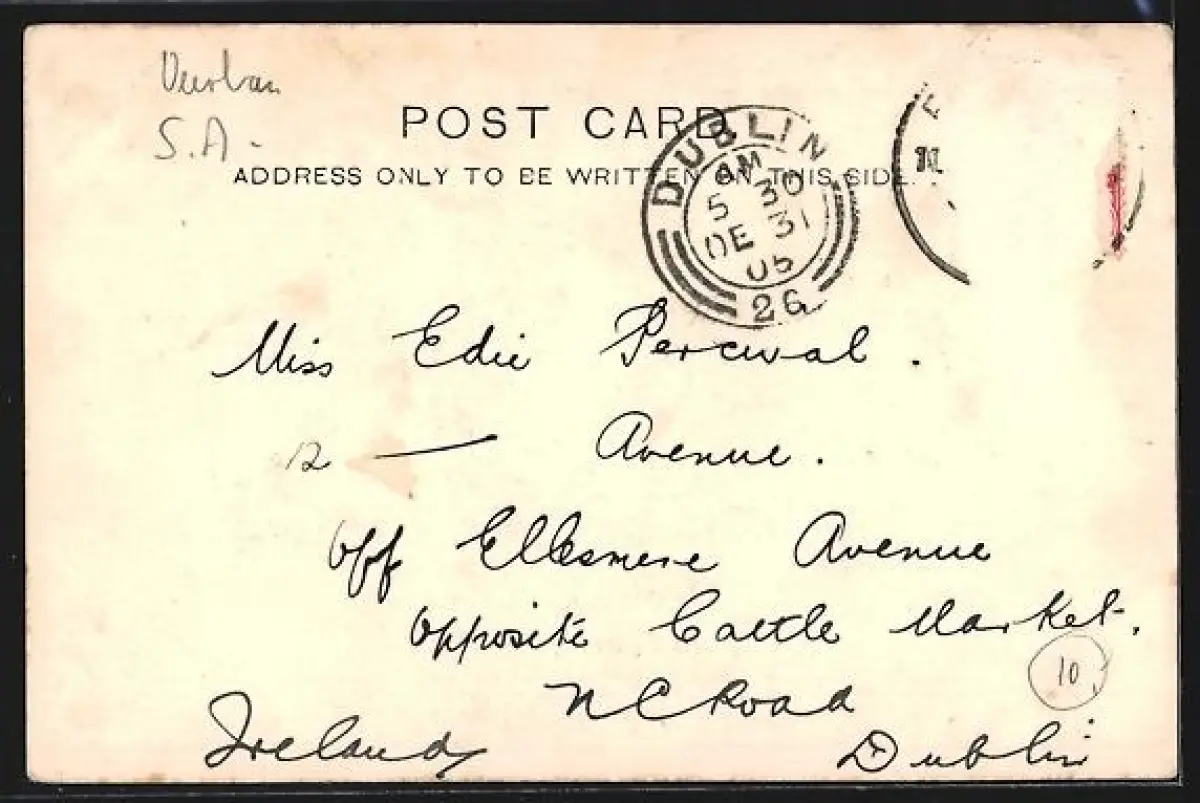 Durban
S.A.
POST CARD.
ADDRESS ONLY TO BE WRITTEN ON THIS SIDE.
DUBLIN
AM
5 30
DE 31
05
26
Miss Edie Percival.
12 — Avenue.
Off Ellesmere Avenue
Opposite Cattle Market.
10
N C Road
Ireland Dublin